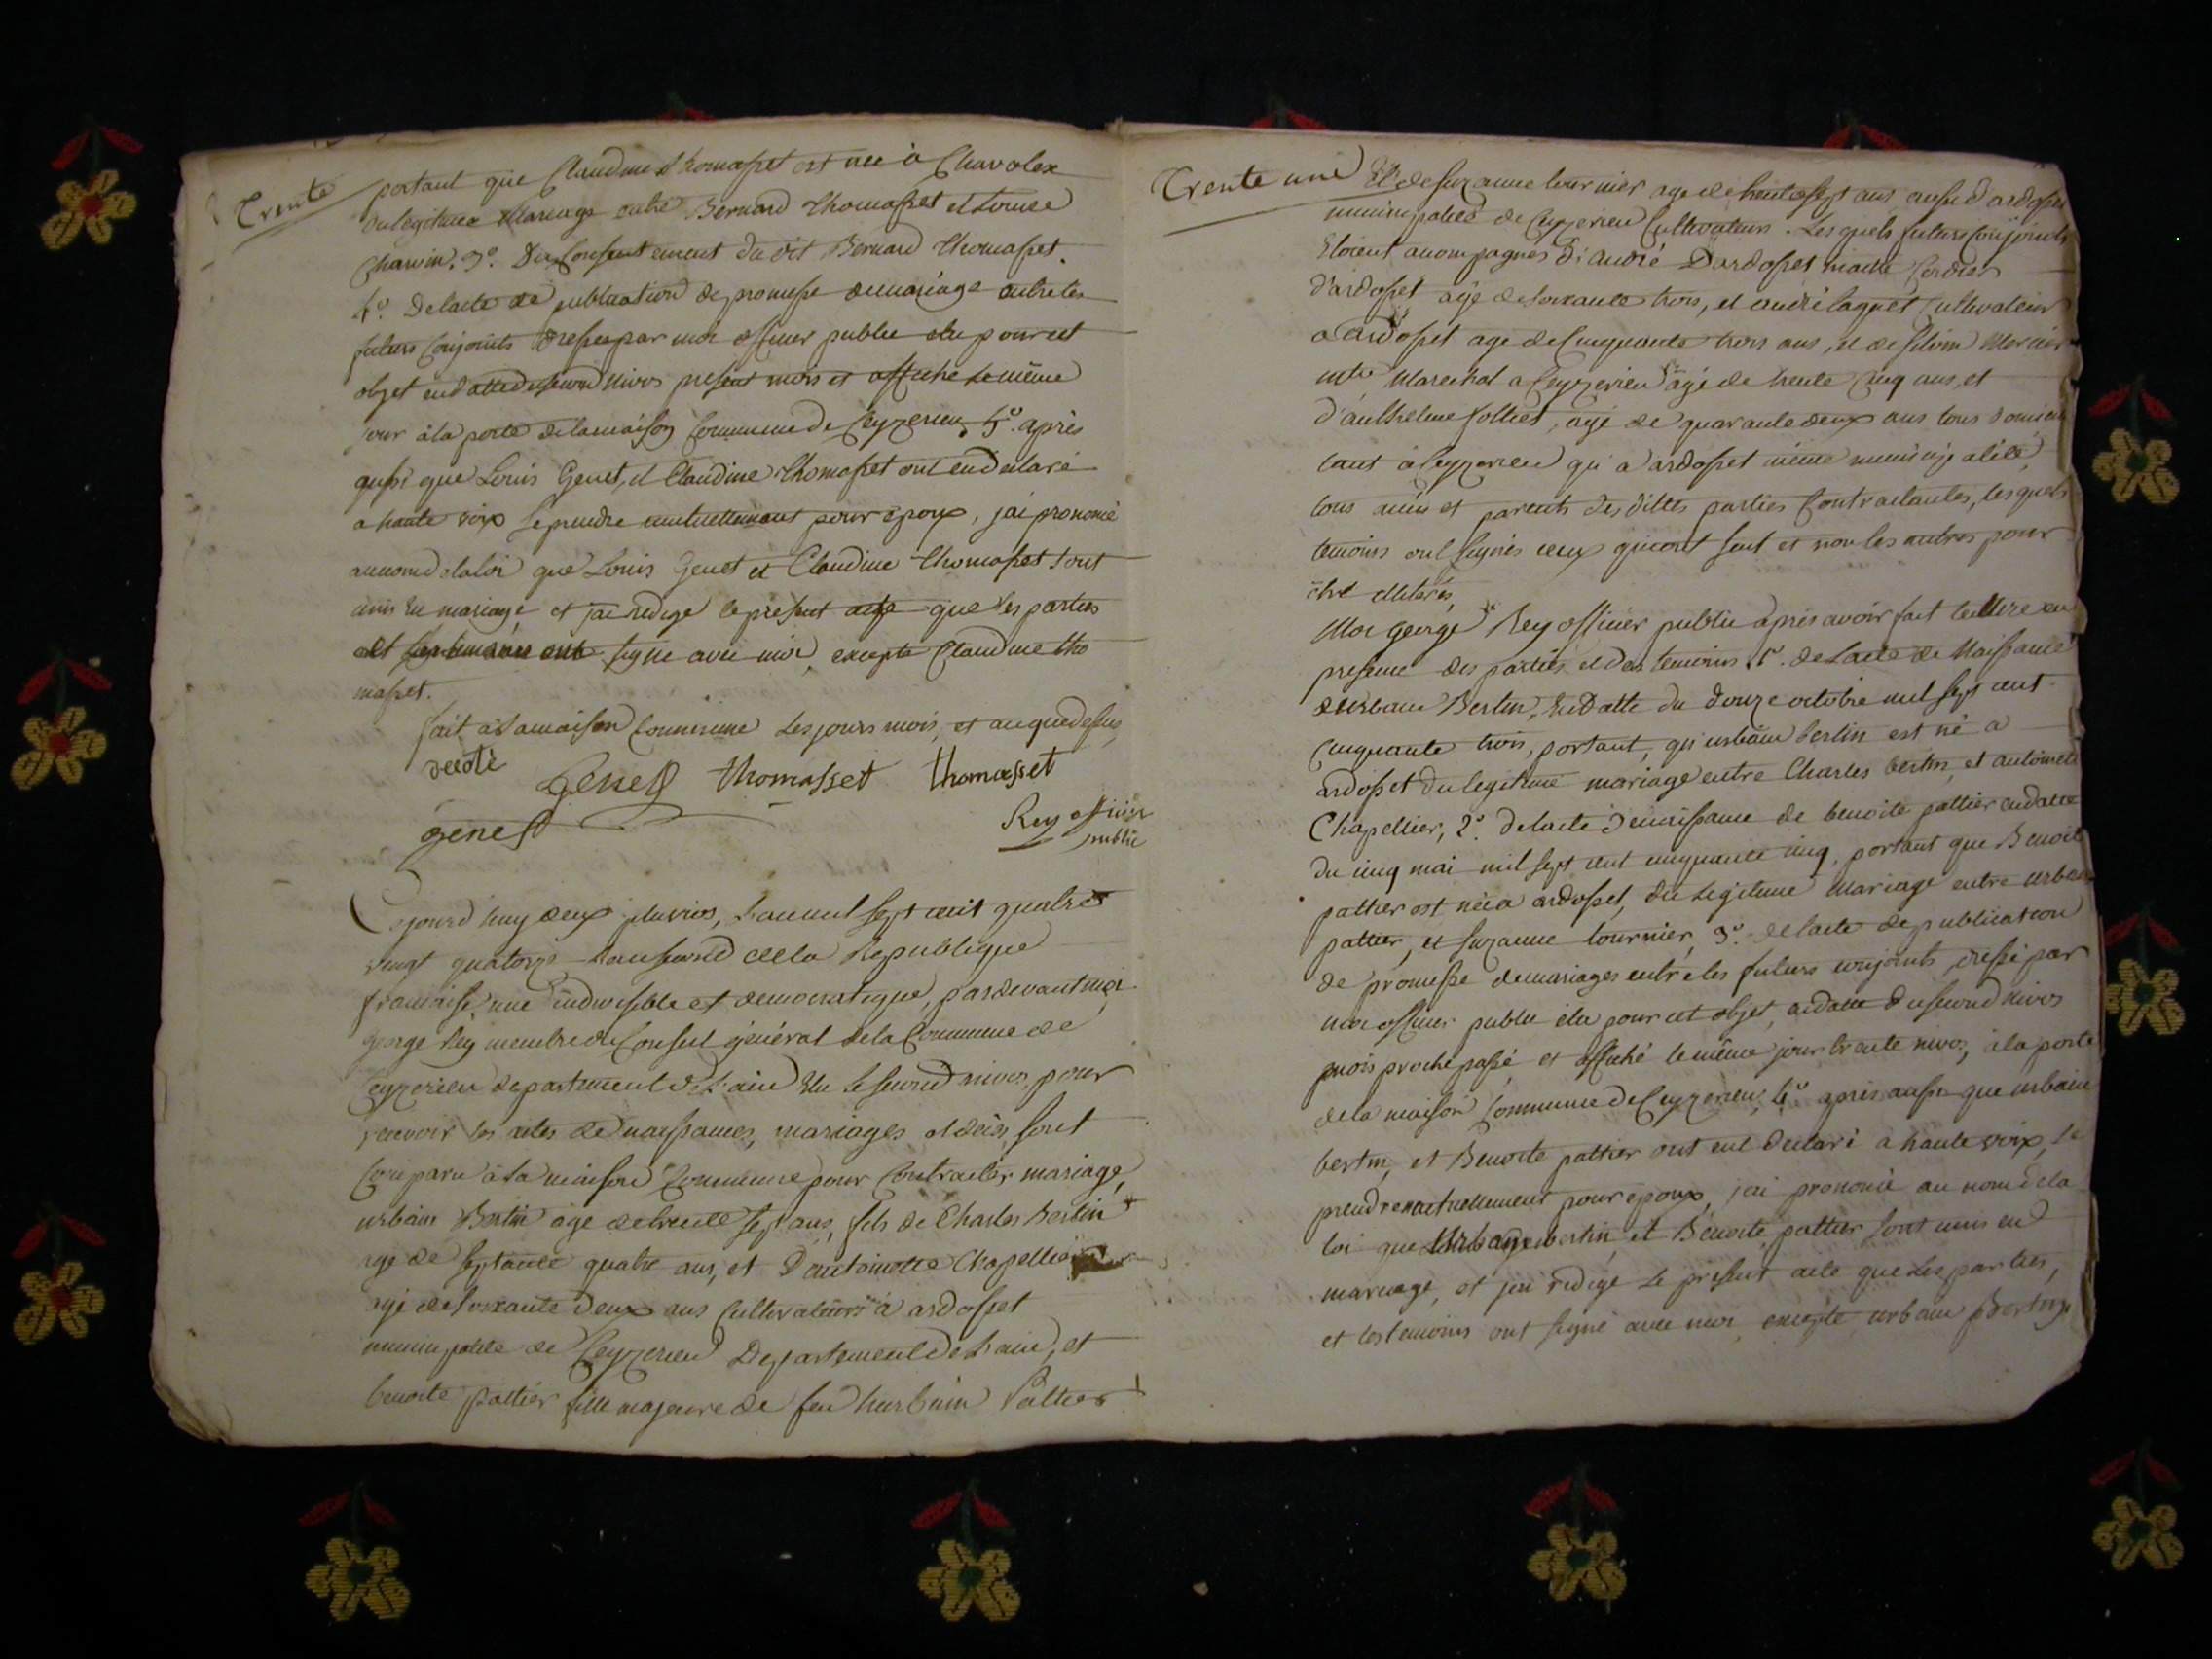 Trente
portant que Claudine thomasset est née à Chavolex
du legitime Mariage entre Bernard thomasset et Louise
Charvin. 3º. Du Consentement du dit Bernard thomasset.
4º. De lacte de publication de promesse de mariage entre les
futurs Conjoints dressée par moi officier public elu pour cet
objet en datte du second nivos present mois et affiché le même
jour à la porte de la maison Commune de Ceyzerieu, 5º. après
aussi que Louis Genet, et Claudine thomasset ont eu declaré
a haute voix se prendre mutuellement pour époux, jai prononcé
au nom de la loi que Louis Genet et Claudine thomasset sont
unis en mariage, et jai redigé le present acte que les parties
et les temoins ont signé avec moi, excepte Claudine tho
masset.
fait à la maison Commune les jours mois, et an que dessus
decoté Genet thomasset thomasset
genet Rey officier
public
Cejourd'huy deux pluvios, L'an mil sept cent quatre
vingt quatorze L'an second de la Republique
francaise, une indivisible et democratique, pardevant moi,
george Rey membre du Conseil général de la Commune de
Ceyzerieu departement de L'ain Elu le second nivos, pour
recevoir les actes de naissances, mariages et décès, sont
Comparu à la maison Commune pour Contracter mariage,
urbain Bertin age de trente sept ans, fils de Charles Bertin
age de septante quatre ans, et D'antoinette Chapellier
agé de soixante deux ans Cultivateurs à ardosset
municipalité de Ceyzerieu Departement de L'ain, et
benoite pattier fille majeure de feu hurbain Pattier
Trente une
Et de suzanne tournier age de sept ans aussi d'ardosset
municipalité de Ceyzerieu Cultivateurs. Les quels futurs Conjoints
Etoient accompagnés d'andré Dardosset
d'ardosset agé de soixante trois, et andré laguet Cultivateur
a ardosset age de Cinquante trois ans, et de silvin Mercier
mtre Marechal a Ceyzerieu agé de trente Cinq ans, et
d'anthelme folliet, agé de quarante deux ans tous domici
tant à Ceyzerieu qu'a ardosset même municipalité,
tous amis et parents des dittes parties Contractantes, les quels
temoins ont signés ceux qui ont scut et non les autres pour
etre illiteres,
Moi george Rey officier public après avoir fait lecture en
presence des parties et des temoins 1º. de Lacte de Naissance
d'urbain Bertin, En Datte du douze octobre mil sept cent
Cinquante trois, portant, qu'urbain bertin est né a
ardosset du legitime mariage entre Charles bertin, et antoinette
Chapellier, 2º. de lacte de naissance de benoite pattier en datte
du cinq mai mil sept cent cinquante cinq, portant que Benoite
pattier est née a ardosset, du Legitime Mariage entre urbain
pattier, et suzanne tournier, 3º. de lacte de publication
de promesse de mariages entre les futurs conjoints, dressé par
moi officier public élu pour cet objet, en datte du second nivos
mois proche passé et affiché le même jour trente nivos, à la porte
de la maison Commune de Ceyzerieu, 4º. après aussi que urbain
bertin, et Benoite pattier ont eut declaré a haute voix, se
prendre mutuellement pour époux, jai prononcé au nom de la
loi que Urbain bertin, et Benoite pattier sont unis en
mariage, et jai redigé le present acte que les parties,
et les temoins ont signé avec moi, excepte urbain Bertin,